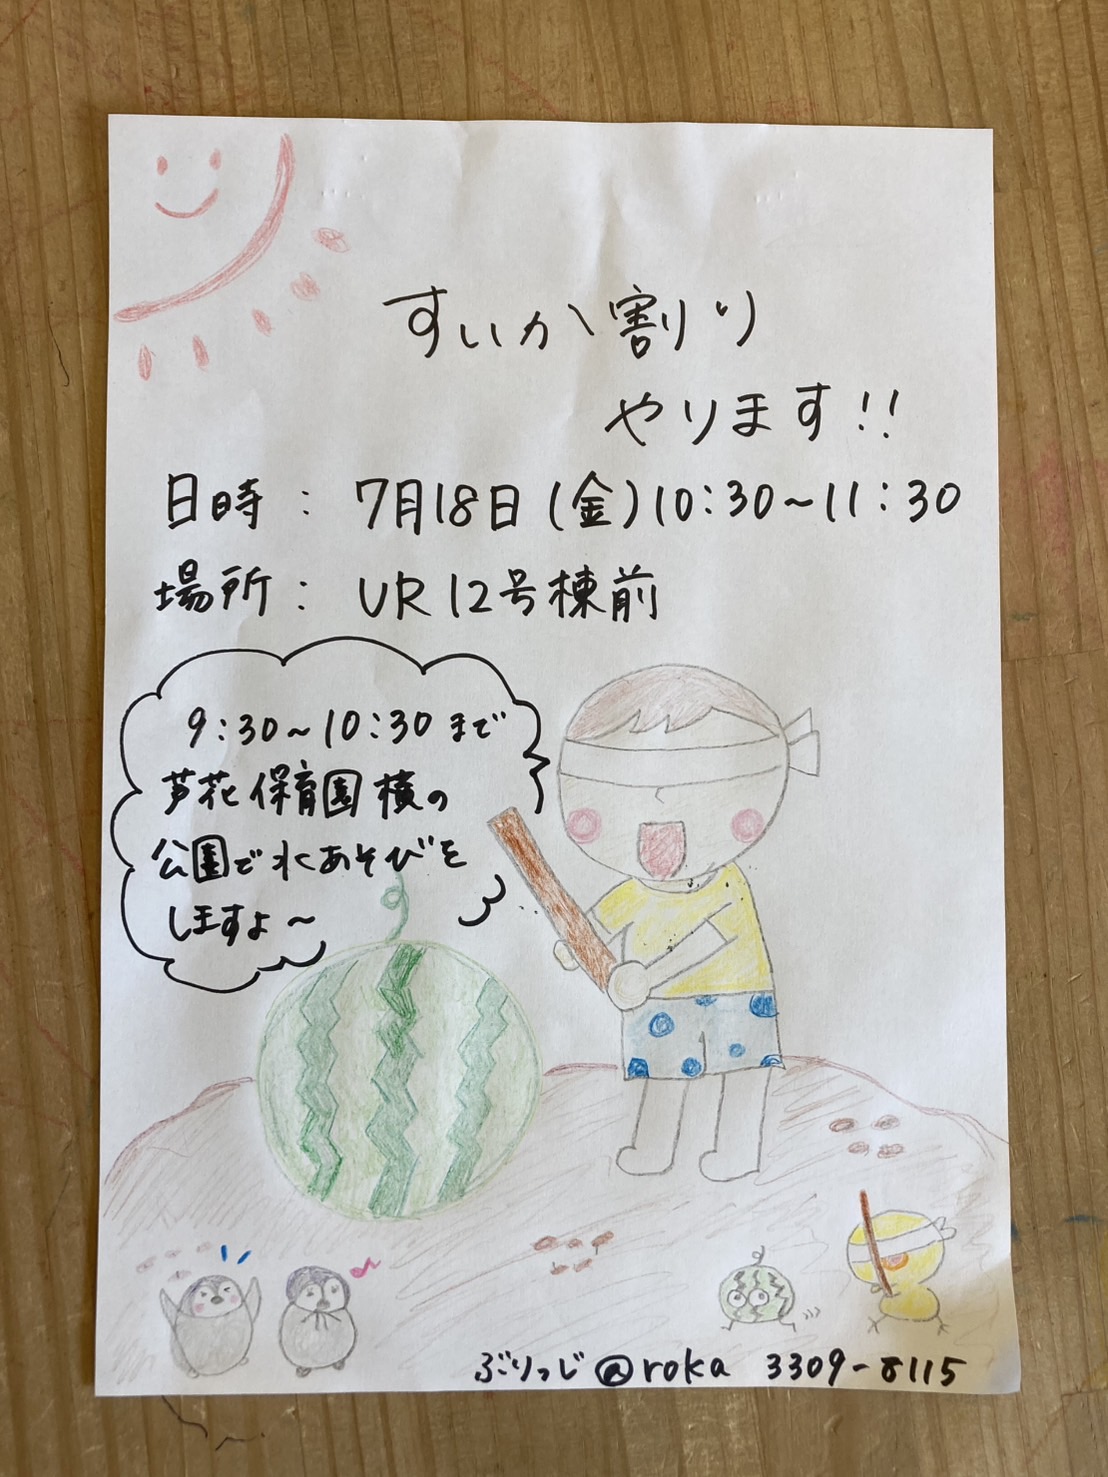 すいか割り
やります!!
日時:7月18日(金)10:30~11:30
場所:UR12号棟前
9:30~10:30まで
芦花保育園横の
公園で水あそびを
しますよ~
ぶりっじ@roka 3309-8115